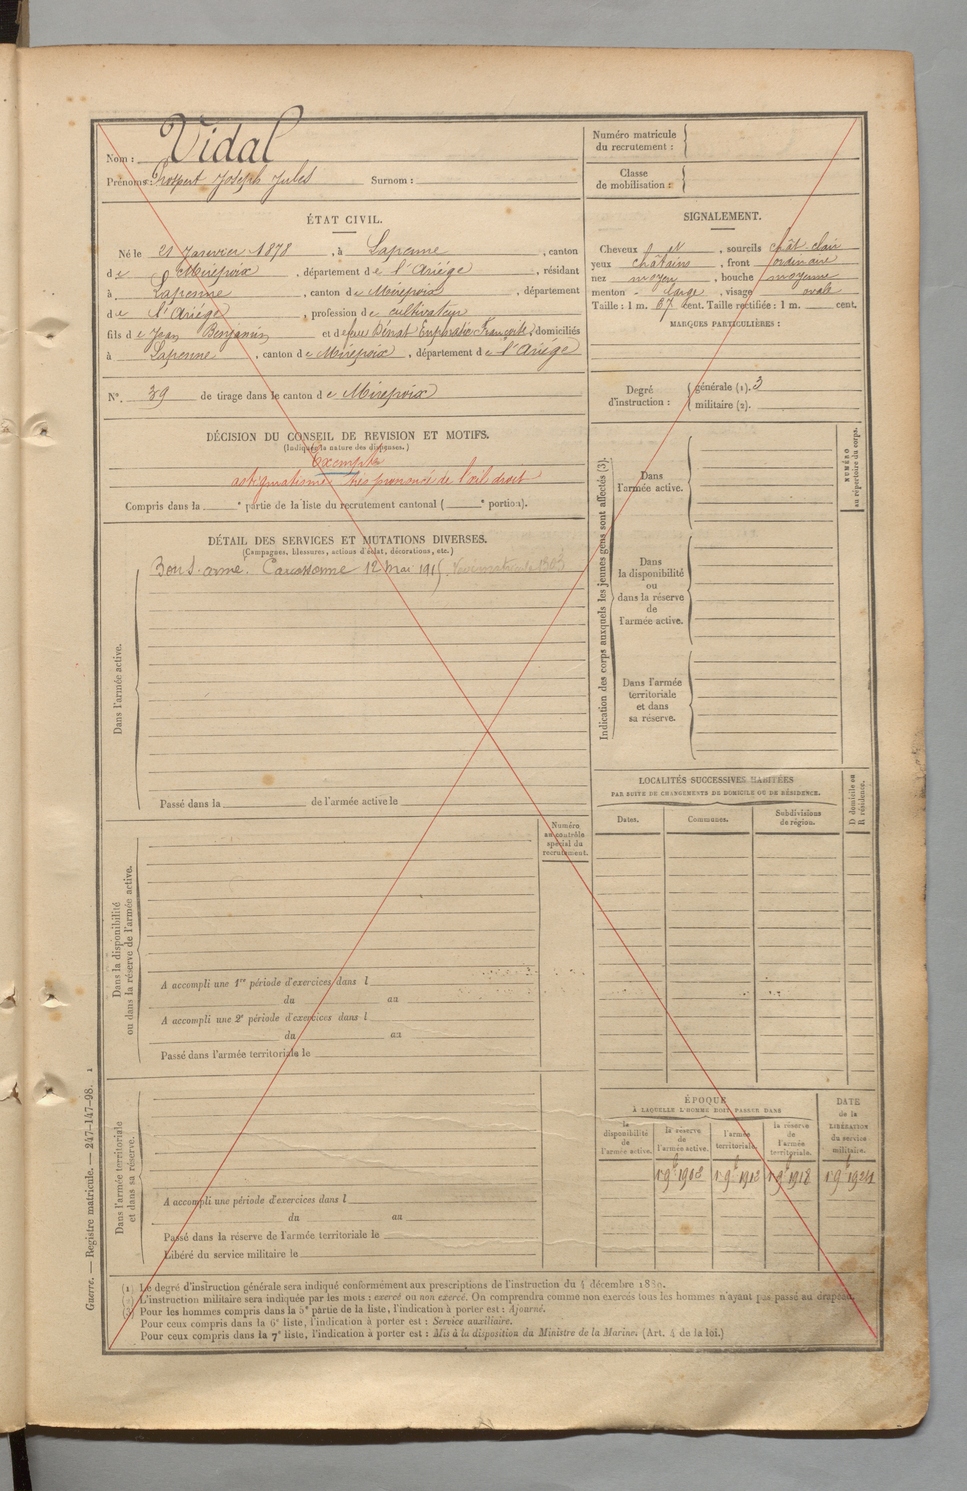 Nom : Vidal
Prénoms : Prospert Joseph Jules Surnom :
Numéro matricule
du recrutement :
Classe
de mobilisation :
ÉTAT CIVIL.
Né le 21 Janvier 1878, à Lapenne, canton
de Mirepoix, département de l'Ariége, résidant
à Lapenne, canton de Mirepoix, département
de l'Ariége, profession de cultivateur
fils de Jean Benjamin et de feue Bénat Euphrasie Françoise, domiciliés
à Lapenne, canton de Mirepoix, département de l'Ariége
N°. 39 de tirage dans le canton de Mirepoix
SIGNALEMENT.
Cheveux, sourcils chât clair
yeux châtains, front ordinaire
nez moyen, bouche moyenne
menton large, visage ovale
Taille : 1 m. 67 cent. Taille rectifiée : 1 m. cent.
MARQUES PARTICULIÈRES :
Degré
d'instruction :
générale (1). 3
militaire (2).
DÉCISION DU CONSEIL DE REVISION ET MOTIFS.
(Indiquer la nature des dispenses.)
Exempté
astigmatisme très prononcé de l'œil droit
Compris dans la e partie de la liste du recrutement cantonal ( e portion).
DÉTAIL DES SERVICES ET MUTATIONS DIVERSES.
(Campagnes, blessures, actions d'éclat, décorations, etc.)
Bon S. armé. Carcassonne 12 mai 1915.
Dans l'armée active.
Passé dans la de l'armée active le
Numéro
au contrôle
spécial du
recrutement.
Dans la disponibilité
ou dans la réserve de l'armée active.
A accompli une 1re période d'exercices dans l
du au
A accompli une 2e période d'exercices dans l
du au
Passé dans l'armée territoriale le
Dans l'armée territoriale
et dans sa réserve.
A accompli une période d'exercices dans l
du au
Passé dans la réserve de l'armée territoriale le
Libéré du service militaire le
Indication des corps auxquels les jeunes gens sont affectés (3).
Dans
l'armée active.
Dans
la disponibilité
ou
dans la réserve
de
l'armée active.
Dans l'armée
territoriale
et dans
sa réserve.
NUMÉRO
au répertoire du corps.
LOCALITÉS SUCCESSIVES HABITÉES
PAR SUITE DE CHANGEMENTS DE DOMICILE OU DE RÉSIDENCE.
Dates. Communes. Subdivisions
de région.
D domicile ou
R résidence.
ÉPOQUE
À LAQUELLE L'HOMME DOIT PASSER DANS
la
disponibilité
de
l'armée active.
la réserve
de
l'armée active.
l'armée
territoriale.
la réserve
de
l'armée
territoriale.
DATE
de la
LIBÉRATION
du service
militaire.
1er 9bre 1908 1er 9bre 1912 1er 9bre 1918 1er 9bre 1924
(1) Le degré d'instruction générale sera indiqué conformément aux prescriptions de l'instruction du 4 décembre 1889.
(2) L'instruction militaire sera indiquée par les mots : exercé ou non exercé. On comprendra comme non exercés tous les hommes n'ayant pas passé au drapeau.
(3) Pour les hommes compris dans la 5e partie de la liste, l'indication à porter est : Ajourné.
Pour ceux compris dans la 6e liste, l'indication à porter est : Service auxiliaire.
Pour ceux compris dans la 7e liste, l'indication à porter est : Mis à la disposition du Ministre de la Marine. (Art. 4 de la loi.)
Guerre. — Registre matricule. — 247-147-98. 1